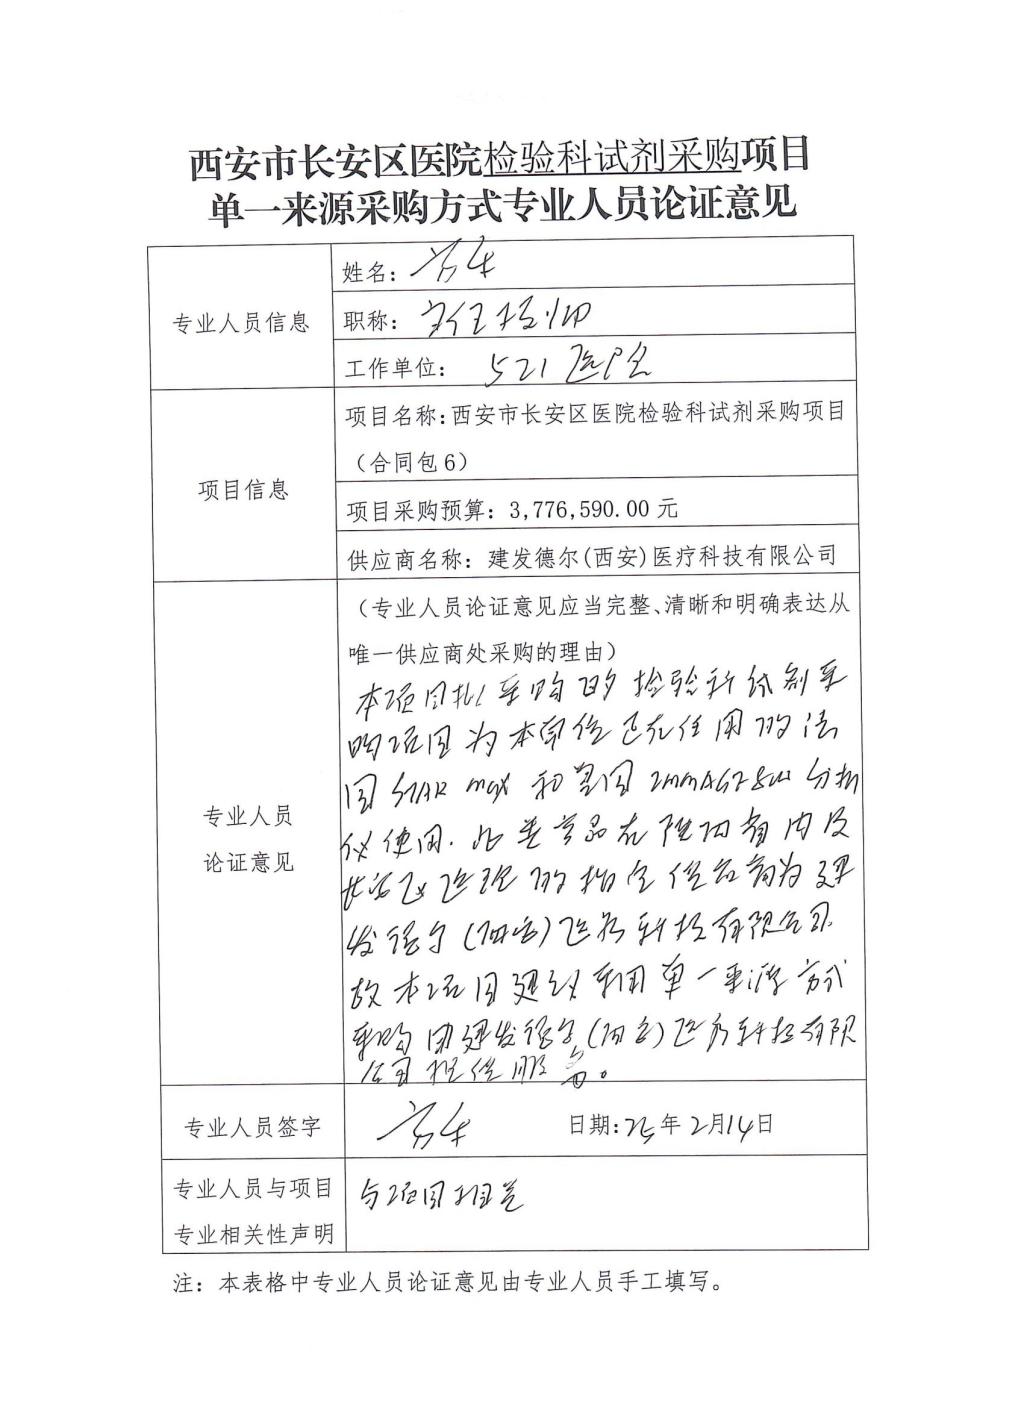 西安市长安区医院检验科试剂采购项目
单一来源采购方式专业人员论证意见
专业人员信息
姓名:
职称: 主任技师
工作单位: 521医院
项目信息
项目名称:西安市长安区医院检验科试剂采购项目
(合同包6)
项目采购预算: 3,776,590.00 元
供应商名称: 建发德尔(西安)医疗科技有限公司
专业人员
论证意见
(专业人员论证意见应当完整、清晰和明确表达从
唯一供应商处采购的理由)
本项目拟采购的检验科试剂采
购项目为本单位正在使用的法
国STAR max和美国 分析
仪使用.此类产品在陕西省内及
长安区医院的指定供应商为建
发德尔(西安)医疗科技有限公司.
故本项目建议采用单一来源方式
采购由建发德尔(西安)医疗科技有限
公司提供服务。
专业人员签字
日期:25年2月14日
专业人员与项目
专业相关性声明
与项目相关
注: 本表格中专业人员论证意见由专业人员手工填写。